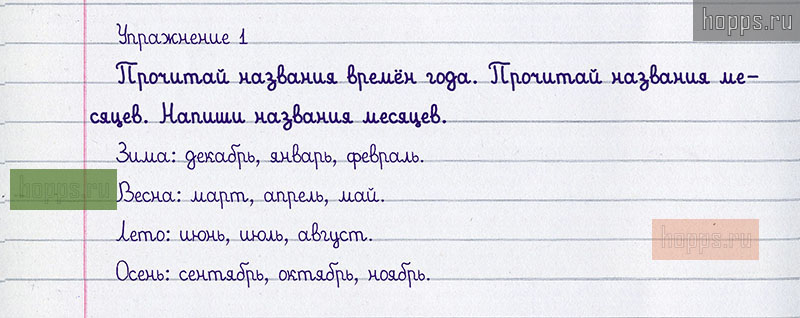 hopps.ru
Упражнение 1
Прочитай названия времён года. Прочитай названия ме-
сяцев. Напиши названия месяцев.
Зима: декабрь, январь, февраль.
hopps.ru
Весна: март, апрель, май.
Лето: июнь, июль, август.
hopps.ru
Осень: сентябрь, октябрь, ноябрь.